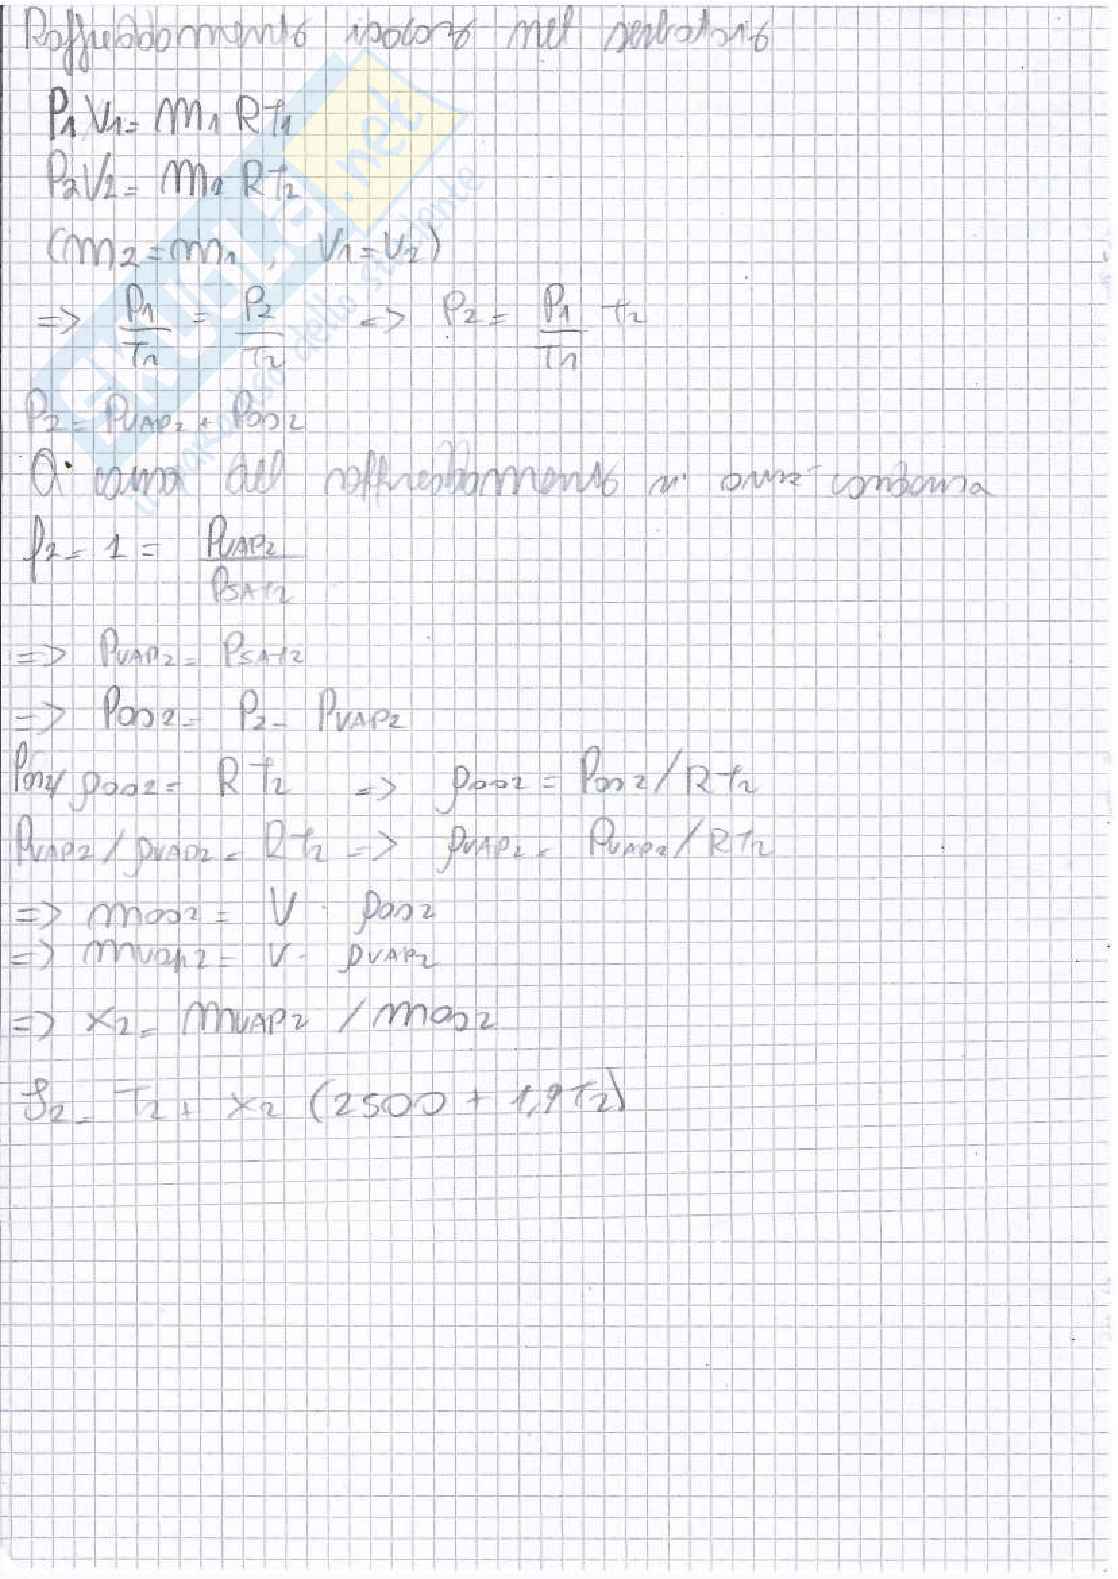 Raffreddamento isocoro nel serbatoio
P1V1 = m1 RT1
P2V2 = m2 RT2
(m2 = m1, V1 = V2)
=> P1/T1 = P2/T2 => P2 = P1/T1 T2
P2 = PVAP2 + Pas2
A causa del raffreddamento si avrà condensa
φ2 = 1 = PVAP2/PSAT2
=> PVAP2 = PSAT2
=> Pas2 = P2 - PVAP2
Pas2/ρas2 = RT2 => ρas2 = Pas2/RT2
PVAP2/ρVAP2 = RT2 => ρVAP2 = PVAP2/RT2
=> mas2 = V · ρas2
=> mvap2 = V · ρVAP2
=> x2 = mVAP2 / mas2
J2 = T2 + x2 (2500 + 1,9T2)
SKUOLA.net
dello studente